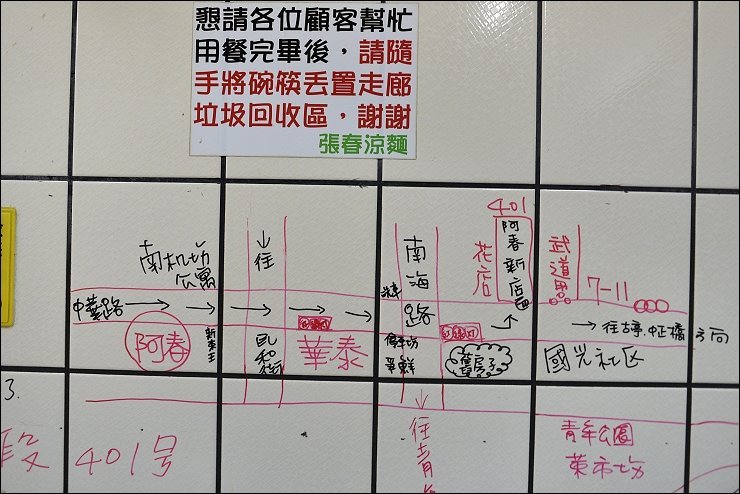 懇請各位顧客幫忙
用餐完畢後，請隨
手將碗筷丟置走廊
垃圾回收區，謝謝
張春涼麵
401
南机坊
公寓
往
南海路
花店
阿春新店
武道
7-11
中華路
阿春
民和街
紅綠灯
華泰
爭鮮
紅綠灯
舊房子
往古亭.中正橋方向
國光社区
3.
段 401号
往青
青年公園
菜市场